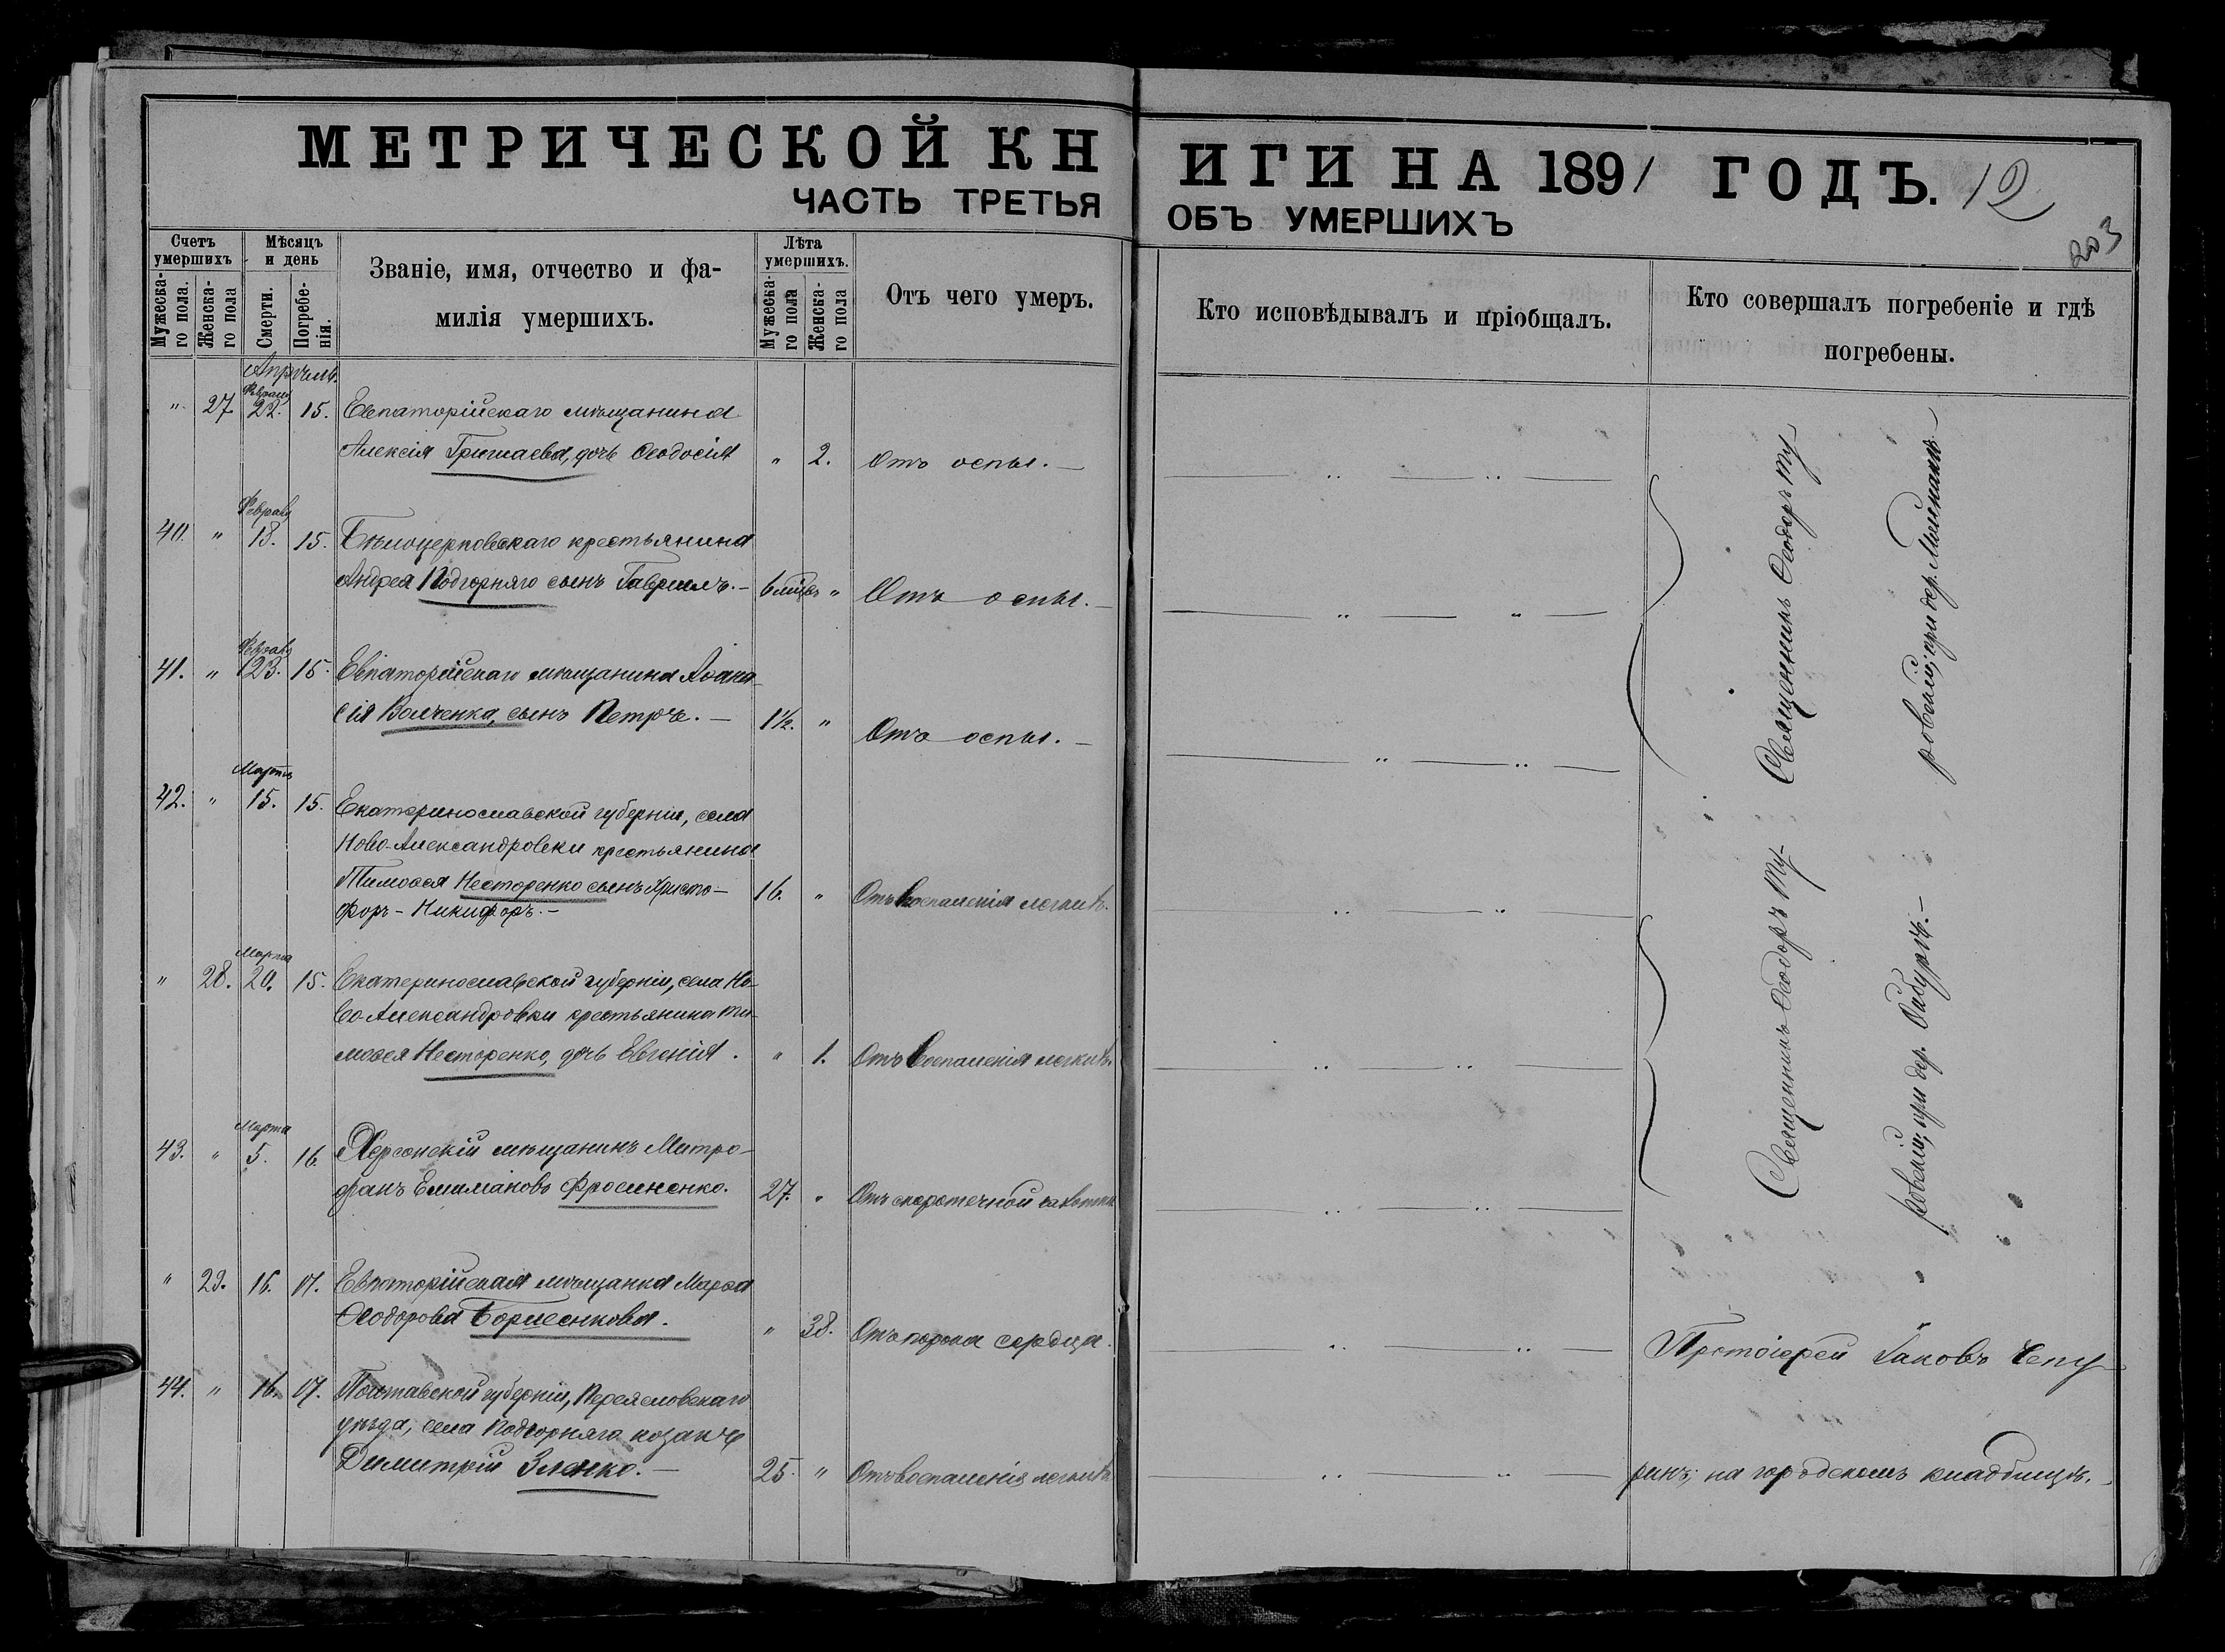 МЕТРИЧЕСКОЙ КНИГИ НА 1891 ГОДЪ. 12
ЧАСТЬ ТРЕТЬЯ ОБЪ УМЕРШИХЪ
203
Счетъ умершихъ
Мужеска-го пола.
Женска-го пола
Мѣсяцъ и день
Смерти.
Погребе-нія.
Званіе, имя, отчество и фа-
милія умершихъ.
Лѣта умершихъ.
Мужеска-го пола
Женска-го пола
Отъ чего умеръ.
Кто исповѣдывалъ и пріобщалъ.
Кто совершалъ погребеніе и гдѣ
погребены.
Апрѣль.
" 27 22. 15. Евпаторійскаго мѣщанина
Алексія Гришаева, дочь Ѳеодосія " 2. Отъ оспы.—
Феврал
40. " 18. 15. Бѣлоцерковскаго крестьянина
Андрея Подгорняго сынъ Гавріилъ.— 6 мцвъ " Отъ оспы.—
Феврал
41. " 23. 15. Евпаторійскаго мѣщанина Аѳана-
сія Волченка, сынъ Петръ.— 1½. " Отъ оспы.—
Марта
42. " 15. 15. Екатеринославской губерніи, села
Ново-Александровки крестьянина
Тимоѳея Несторенко сынъ Христо-
форъ-Никифоръ.— 16. " Отъ воспаленія легкихъ.
Марта
" 28. 20. 15. Екатеринославской губерніи, села Но-
во-Александровки крестьянина Ти-
моѳея Несторенко, дочь Евгенія. " 1. Отъ воспаленія легкихъ.
Марта
43. " 5. 16. Херсонскій мѣщанинъ Митро-
фанъ Емиліановъ Фросиненко. 27. " Отъ скоротечной чахотки
" 29. 16. 17. Евпаторійская мѣщанка Марѳа
Ѳеодорова Борисенкова. " 38. Отъ порока сердца.
44. " 16. 17. Полтавской губерніи, Переясловскаго
уѣзда, села Подгорняго козакъ
Димитрій Зленко.— 25. " Отъ воспаленія легкихъ
Священникъ Ѳеодоръ Ту-
ровскій; при дер.
Священникъ Ѳеодоръ Ту-
ровскій; при дер.
Протоіерей Іаковъ Чепу-
ринъ; на городскомъ кладбищѣ.